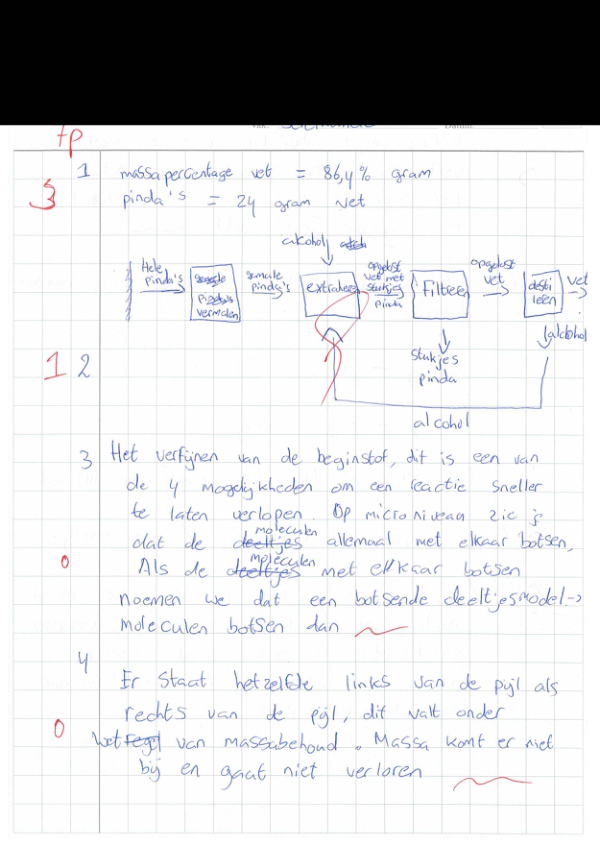 fp
1 massapercentage vet = 86,4 % gram
3
pinda's = 24 gram vet
alcohol
Hele pinda's
vermalen
gemale pinda's
extraheer
opgelost vet met stukjes pinda
Filtreer
opgelost vet
desti leen
vet
alcohol
stukjes pinda
1 2
alcohol
3 Het verfijnen van de beginstof, dit is een van
de 4 mogelijkheden om een reactie sneller
te laten verlopen. Op micro niveau zie je
dat de deeltjes moleculen allemaal met elkaar botsen,
0 Als de deeltjes moleculen met elkaar botsen
noemen we dat een botsende deeltjesmodel ->
moleculen botsen dan
4 Er staat hetzelfde links van de pijl als
rechts van de pijl, dit valt onder
0 wet regel van massabehoud. Massa komt er niet
bij en gaat niet verloren